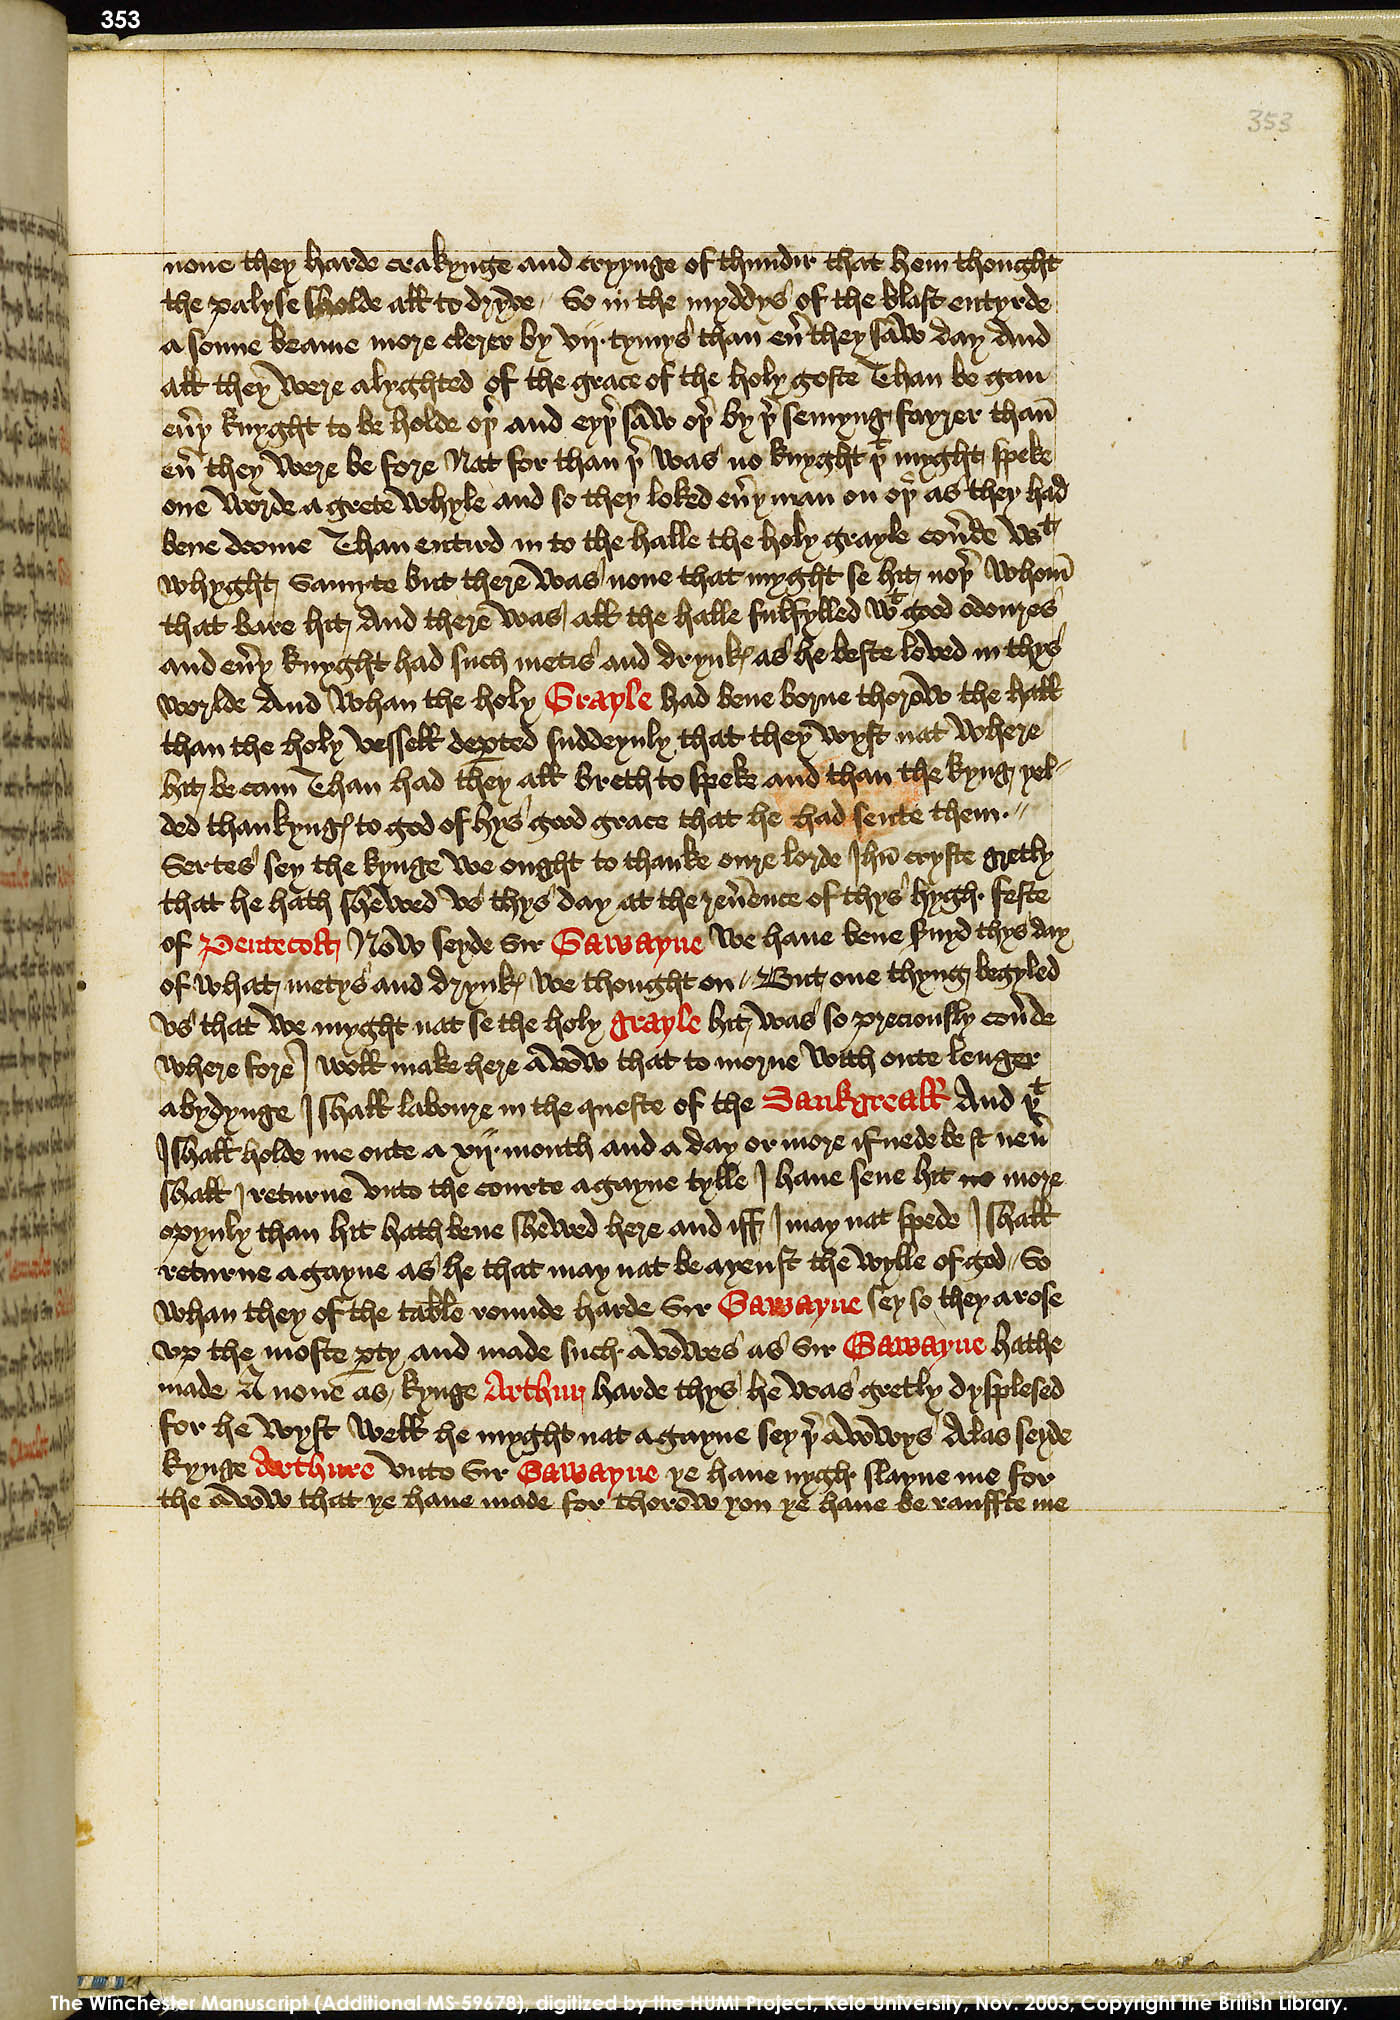 353
353
none they harde crakynge and cryynge of thundir that hem thought
the palyse sholde all to dryve // So in the myddys of the blast entyrde
a sonne beame more clerer by vij· tymys than eu̅ they saw day And
all they were alyghted of the grace of the holy goste Than be gan
eu̅y knyght to be holde oþ̅ and eyþ̅ saw oþ̅ by þ̅ semyng fayrer than̅
eu̅ they were be fore Nat for than þ̅ was no knyght þᵗ myght speke
one worde a grete whyle and so they loked eu̅y man on oþ̅ as they had
bene doome Than entird in to the halle the holy grayle cou̅de wᵗ
whyght samyte but there was none that myght se hit noþ̅ whom̅
that bare hit And there was all the halle fulfylled wᵗ good odoures
and eu̅y knyght had such metis and drynkꝭ as he beste loved in thys
worlde And whan the holy Grayle had bene borne thorow the hall
than the holy vessell deꝑted suddeynly that they wyst nat where
hit be cam Than had they all breth to speke and than the kyng yel-
ded thankyngꝭ to god of hys good grace that he had sente them·//
Sertes sey the kynge we ought to thanke oure lorde Jhu̅ cryste gretly
that he hath shewed vs thys day at the reu̅ence of thys hygh feste
of Pentecost Now seyde sir Gawayne we haue bene s̅uyd thys day
of what metys and drynkꝭ we thought on // But one thyng begyled
vs that we myght nat se the holy grayle hit was so preciously cou̅de
where fore I woll make here a vow that to morne with oute lenger
abydynge I shall laboure in the queste of the Sankgreall And þᵗ
I shall holde me oute a xij· month and a day or more if nede be & neu̅
shall I returne vnto the courte agayne tylle I haue sene hit no more
opynly than hit hath bene shewed here and iff I may nat spede I shall
returne agayne as he that may nat be ayenst the wylle of god // So
whan they of the table rounde harde Sir Gawayne sey so they arose
vp the moste ꝑty and made such avowes as Sir Gawayne hathe
made A none as kynge Arthur harde thys he was gretly dysplesed
for he wyst well he myght nat agayne sey þ̅ avowys Alas seyde
kynge Arthure vnto Sir Gawayne ye haue nygh slayne me for
the avow that ye haue made for thorow you ye haue be rauffte me
The Winchester Manuscript (Additional MS 59678), digitized by the HUMI Project, Keio University, Nov. 2003, Copyright the British Library.